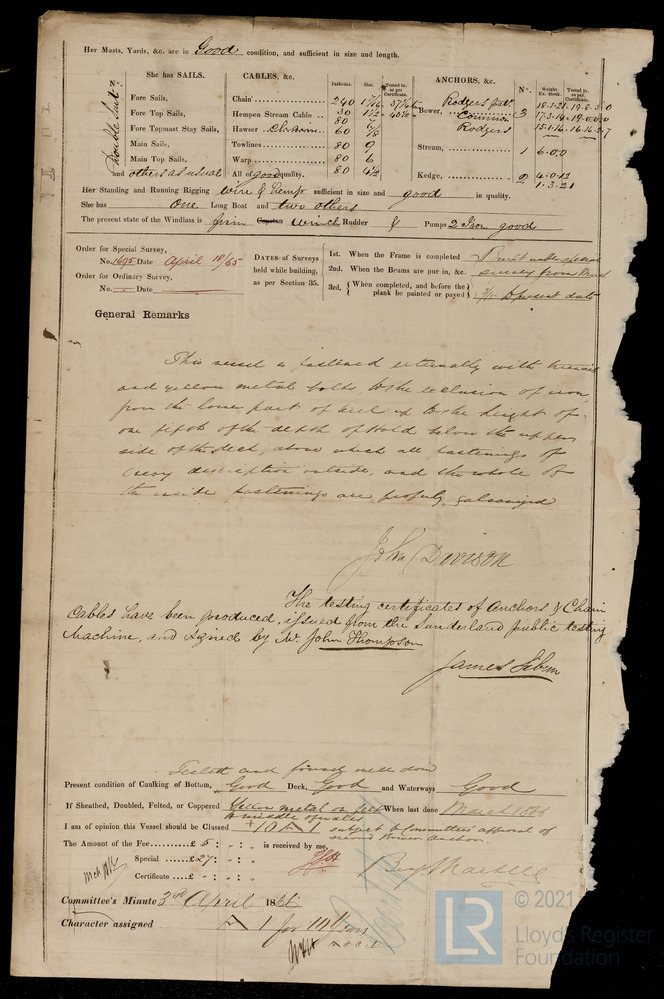 Her Masts, Yards, &c. are in Good condition, and sufficient in size and length.
She has SAILS.
CABLES, &c.
Fathoms.
Size.
Tested to as per Certificate.
ANCHORS, &c.
No.
Weight. Ex. Stock.
Tested to as per Certificate.
Double Suit
Fore Sails,
Fore Top Sails,
Fore Topmast Stay Sails,
Main Sails,
Main Top Sails,
and others as usual
Chain 240 1 7/16
Hempen Stream Cable 80 7
Hawser 60
Towlines 80 9
Warp 80 6
All of good quality. 80 4 1/2
Bower, 3
Rodgers pat.
Common
Rodgers
Stream, 1 6.0.0
Kedge, 2 4.0.12
1.3.21
Her Standing and Running Rigging wire & hemp sufficient in size and good in quality.
She has One Long Boat and two others
The present state of the Windlass is firm Capstan winch Rudder & Pumps 2 Iron good
Order for Special Survey,
No. 1695 Date April 18/65
Order for Ordinary Survey,
No. Date
DATES of Surveys held while building, as per Section 35.
1st. When the Frame is completed
2nd. When the Beams are put in, &c.
3rd. { When completed, and before the plank be painted or payed }
Built under special
survey from March
to present date
General Remarks
This vessel is fastened externally with treenails
and yellow metal bolts, to the exclusion of iron,
from the lower part of keel up to the height of
one fifth of the depth of Hold below the upper
side of the deck, above which all fastenings of
every description outside, and the whole of
the inside fastenings are properly galvanized
John Davison
The testing certificates of Anchors & Chain
Cables have been produced, issued from the Sunderland public testing
Machine, and signed by Mr. John Thompson
James
Tested and found well done
Present condition of Caulking of Bottom, Good Deck, Good and Waterways Good
If Sheathed, Doubled, Felted, or Coppered Yellow metal on felt When last done March 1866
to middle of wales
I am of opinion this Vessel should be Classed 10 A 1 subject to Committee's approval of
second Bower anchor.
The Amount of the Fee......£ 5 : - : - is received by me,
Special ......£ 27 : - : -
Certificate ....£ - : - : -
Committee's Minute 3rd April 1866
Character assigned A 1 for 10 Years
© 2021
LR
Lloyd's Register
Foundation